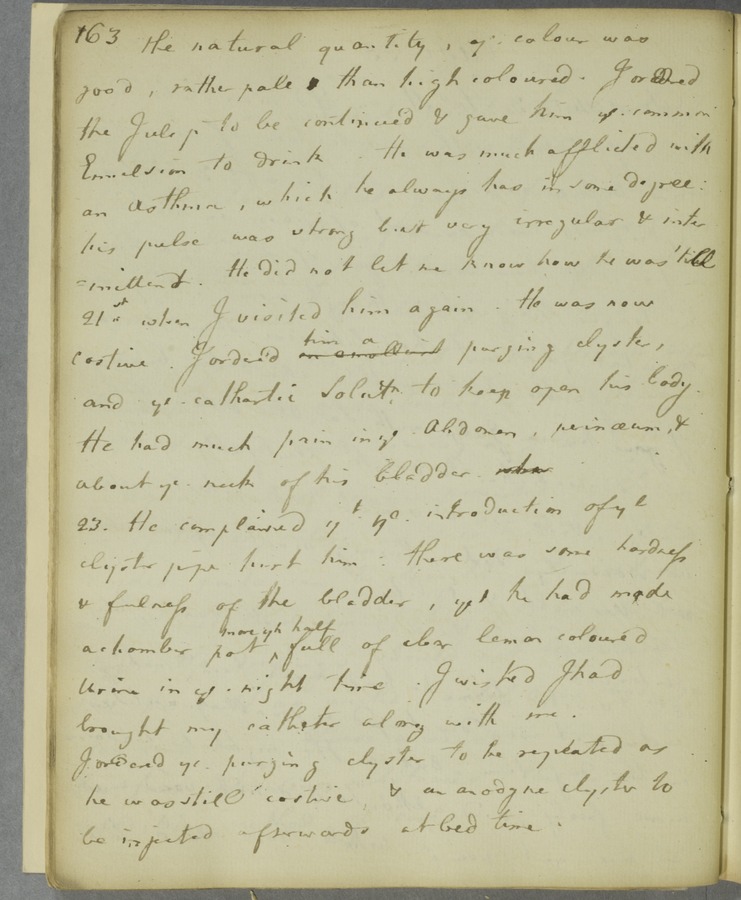 163 the natural quantity, ye. colour was
good, rather pale than high coloured. I ordered
the Julep to be continued & gave him ye. common
Emulsion to drink. He was much afflicted with
an Asthma, which he always has in some degree:
his pulse was strong but very irregular & inter
=mittent. He did not let me know how he was 'till
21st when I visited him again. He was now
costive. I ordered him a an emollient purging clyster,
and ye. cathartic Solutn. to keep open his body.
He had much pain in ye. Abdomen, perinæum, &
about ye. neck of his bladder. when
23. He complained yt. ye. introduction of ye
clyster pipe hurt him: there was some hardness
& fulness of the bladder, yet he had made
a chamber pot more yn half full of clear lemon coloured
Urine in ye. night time. I wished I had
brought my catheter along with me.
I ordered ye. purging clyster to be repeated as
he was still costive, & an anodyne clyster to
be injected afterwards at bed time.